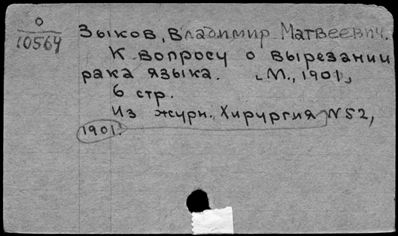 О
10564
Зыков, Владимир Матвеевич.
К вопросу о вырезании
рака языка. [М., 1901]
6 стр.
Из журн. Хирургия N52,
1901.